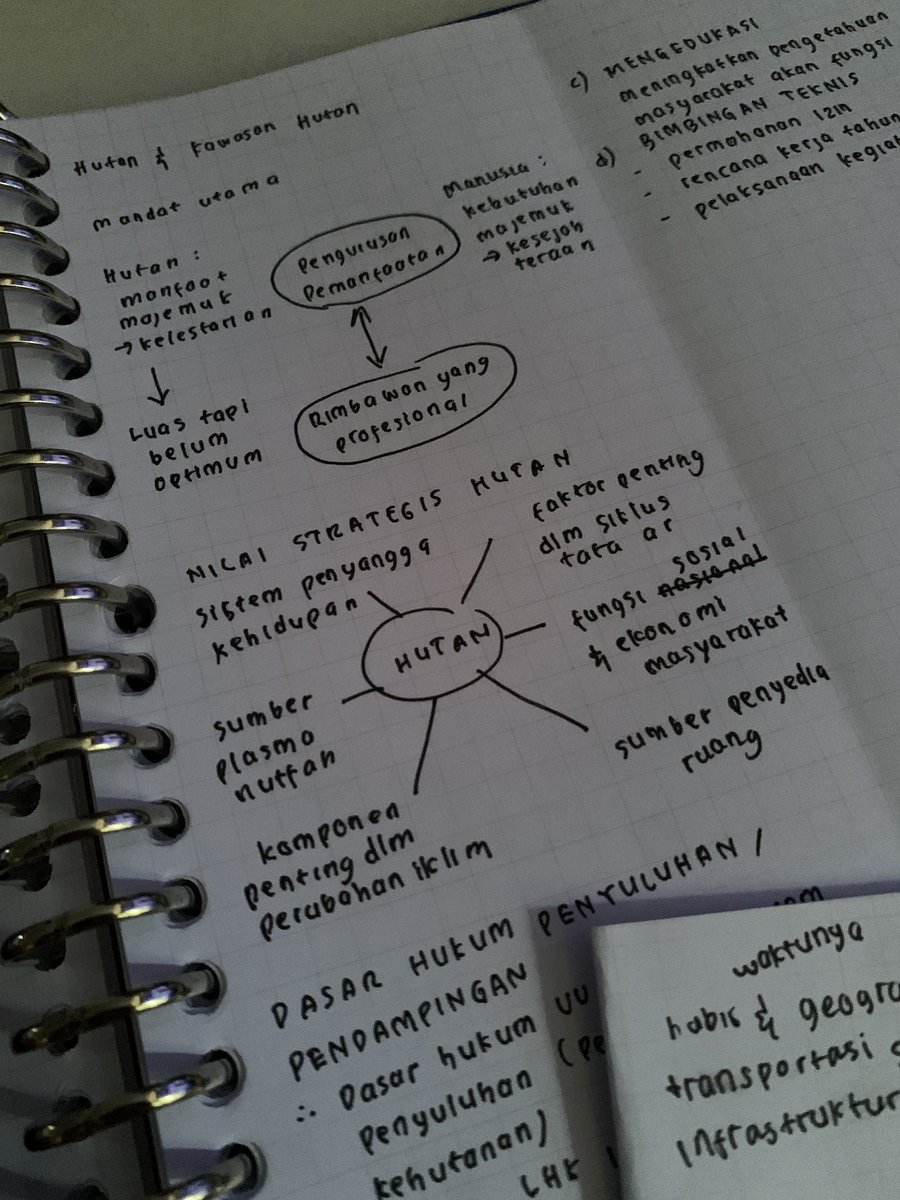 Hutan & Kawasan Hutan
mandat utama
Hutan :
manfaat
majemuk
→ kelestarian
Luas tapi
belum
optimum
Pengurusan
Pemanfaatan
Manusia :
kebutuhan
majemuk
→ kesejah
teraan
Rimbawan yang
profesional
NILAI STRATEGIS HUTAN
sistem penyangga
kehidupan
faktor penting
dlm siklus
tata ar
HUTAN
sosial
fungsi nasional
& ekonomi
masyarakat
sumber
plasma
nutfah
sumber penyedia
ruang
komponen
penting dlm
perubahan iklim
DASAR HUKUM PENYULUHAN /
PENDAMPINGAN
∴ Dasar hukum UU
penyuluhan (pe
kehutanan)
LHK
c) MENGEDUKASI
meningkatkan pengetahuan
masyarakat akan fungsi
d) BIMBINGAN TEKNIS
- permohonan izin
- rencana kerja tahun
- pelaksanaan kegiat
waktunya
habis & geogra
transportasi
infrastruktur